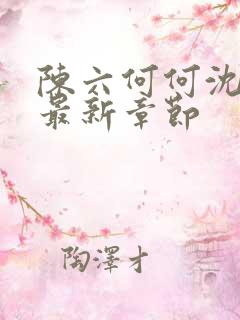 陳六何何沈
最新章節
陶澤才